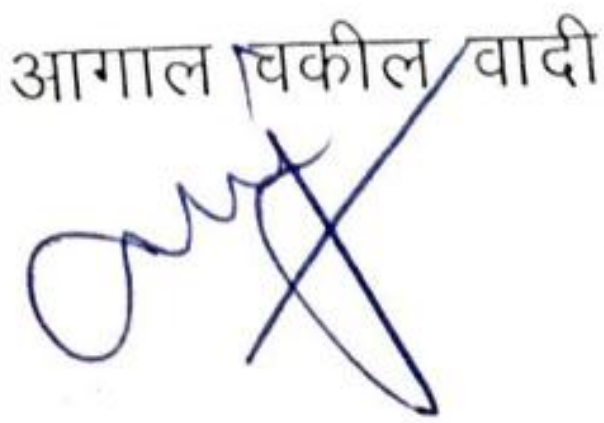 आगाल वकील वादी